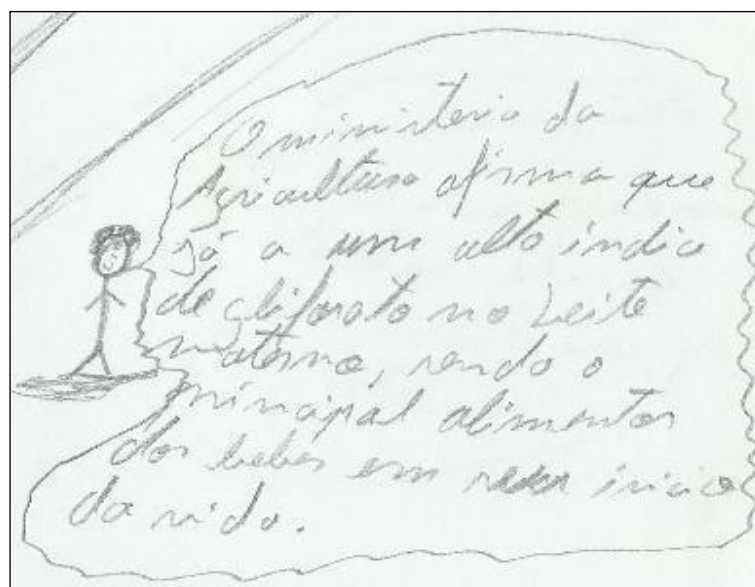 O ministerio da
Agricultura afirma que
já a um alto indice
de glifosato no Leite
materno, sendo o
principal alimentos
dos bebes em seu inicio
da vida.